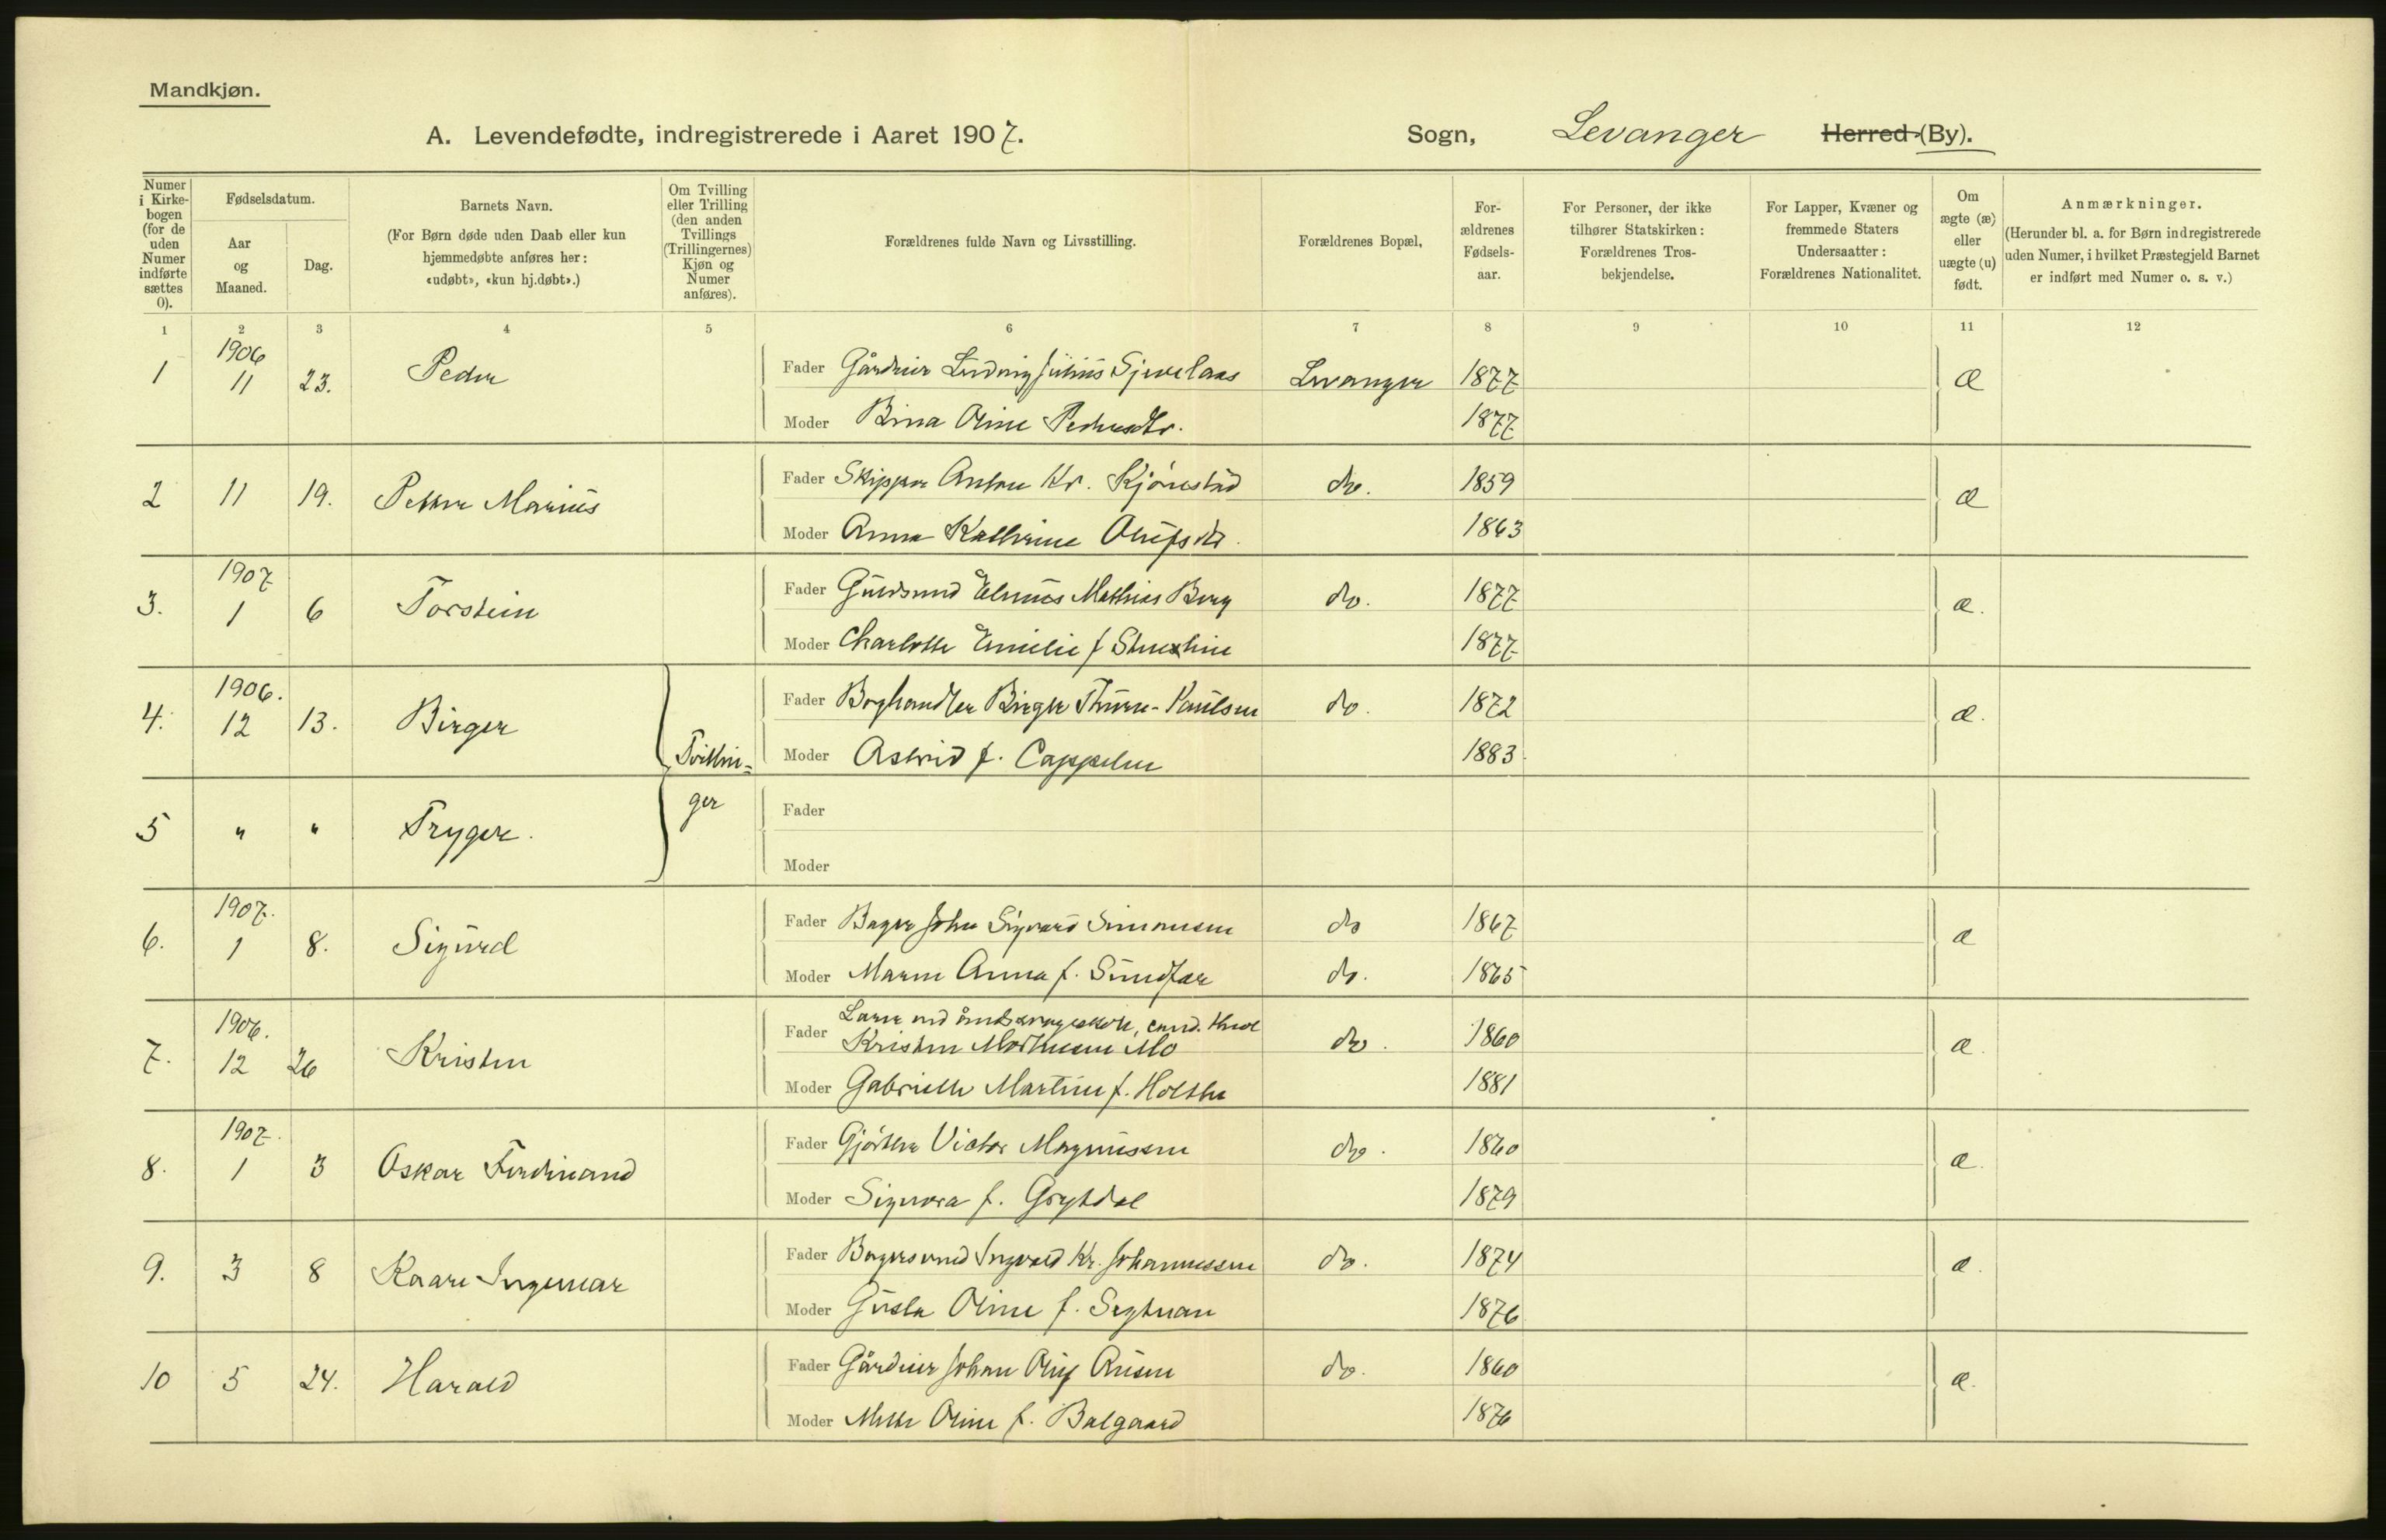 Mandkjøn.
A. Levendefødte, indregistrerede i Aaret 1907. Sogn, Levanger Herred (By).
Numer i Kirke-bogen (for de uden Numer indførte sættes 0).
Fødselsdatum.
Aar og Maaned.
Dag.
Barnets Navn.
(For Børn døde uden Daab eller kun hjemmedøbte anføres her: «udøbt», «kun hj.døbt».)
Om Tvilling eller Trilling (den anden Tvillings (Trillingernes) Kjøn og Numer anføres).
Forældrenes fulde Navn og Livsstilling.
Forældrenes Bopæl,
For-ældrenes Fødsels-aar.
For Personer, der ikke tilhører Statskirken: Forældrenes Tros-bekjendelse.
For Lapper, Kvæner og fremmede Staters Undersaatter: Forældrenes Nationalitet.
Om ægte (æ) eller uægte (u) født.
Anmærkninger.
(Herunder bl. a. for Børn indregistrerede uden Numer, i hvilket Præstegjeld Barnet er indført med Numer o. s. v.)
1 2 3 4 5 6 7 8 9 10 11 12
1906
1 11 23. Peder Fader Gårdeier Ludvig Julius Levanger 1877 æ
Moder Bina Oline Pedersdtr. 1877
2 11 19. Petter Marius Fader Skipper Anton Kr. Kjønstad do. 1859 æ
Moder Anna Kathrine Olufsdtr. 1863
1907
3. 1 6 Torstein Fader Guldsmed Elenus Mathias Berg do. 1877 æ.
Moder Charlotte Emilie f 1877
1906.
4. 12 13. Birger Fader Boghandler Birger Thurn-Paulsen do. 1872 æ.
Tvillin= Moder Astrid f. Cappelen 1883
ger
5 " " Trygve. Fader
Moder
1907.
6. 1 8. Sigurd Fader Bager John Sigvard Simonsen do 1867 æ
Moder Maren Anna f. Sundfær do. 1865
1906.
7. 12 26 Kristen Fader Lærer ved cand. theol
Kristen Mortensen Mo do. 1860 æ.
Moder Gabrielle Martine f. Holthe 1881
1907.
8. 1 3 Oskar Ferdinand Fader Gjørtler Victor Magnussen do. 1860 æ.
Moder Signora f. Grytdal 1879
9. 3 8 Kaare Ingemar Fader Bagersvend Ingvald Kr. Johannessen do. 1874 æ.
Moder Gusta Oline f. Segtnan 1876
10 5 24. Harald Fader Gårdeier Johan Oluf Olisen do. 1860 æ.
Moder Mette Oline f. Balgaard 1876